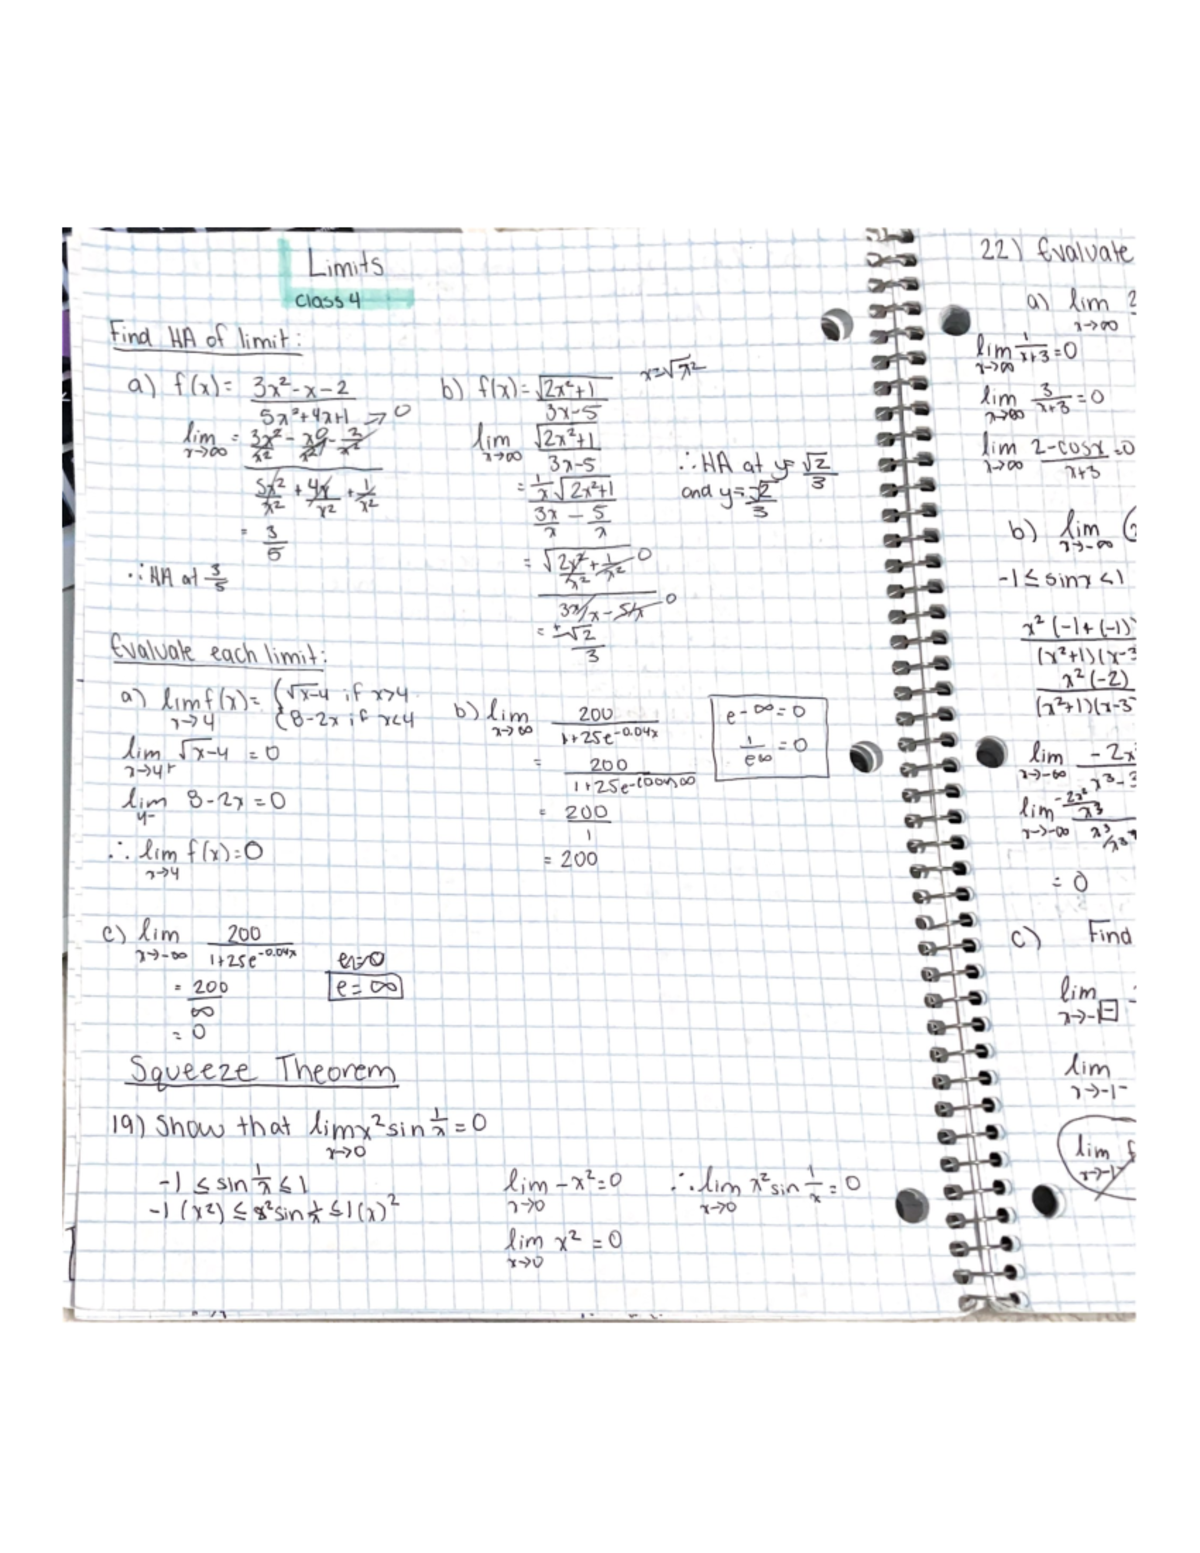 Limits
Class 4
Find HA of limit:
a) f(x) = 3x²-x-2
5x²+4x+1 → 0
lim = 3x²/x² - x/x² 0 - 2/x²
x→∞
5x²/x² + 4x/x² + 1/x²
= 3/5
∴ HA at 3/5
b) f(x) = √2x²+1
3x-5
x=√x²
lim √2x²+1
x→∞ 3x-5
= 1/x √2x²+1
3x/x - 5/x
= √2x²/x² + 1/x² 0
3x/x - 5/x 0
= ±√2
3
∴ HA at y= √2/3
and y= -√2/3
Evaluate each limit:
a) lim f(x) = { √x-4 if x>4
x→4 { 8-2x if x<4
lim √x-4 = 0
x→4+
lim 8-2x = 0
4-
∴ lim f(x) = 0
x→4
b) lim 200
x→∞ 1+25e^-0.04x
= 200
= 200
1
= 200
e-∞ = 0
1/e∞ = 0
c) lim 200
x→-∞ 1+25e^-0.04x
= 200
∞
= 0
e = ∞
Squeeze Theorem
19) Show that lim x² sin 1/x = 0
x→0
-1 ≤ sin 1/x ≤ 1
-1(x²) ≤ x² sin 1/x ≤ 1(x)²
lim -x² = 0
x→0
lim x² = 0
x→0
∴ lim x² sin 1/x = 0
x→0
22) Evaluate
a) lim 2
x→∞
lim 1/x+3 = 0
x→∞
lim 3/x+3 = 0
x→∞
lim 2-cosx = 0
x→∞ x+3
b) lim (
x→-∞
-1 ≤ sinx ≤ 1
x²(-1+(-1)
(x²+1)(x-3
x²(-2)
(x²+1)(x-3
lim -2x
x→-∞ x³-3
lim -2x²/x³
x→-∞ x³/x³
= 0
c) Find
lim
x→-1-
lim
x→-1-
lim f
x→-1-